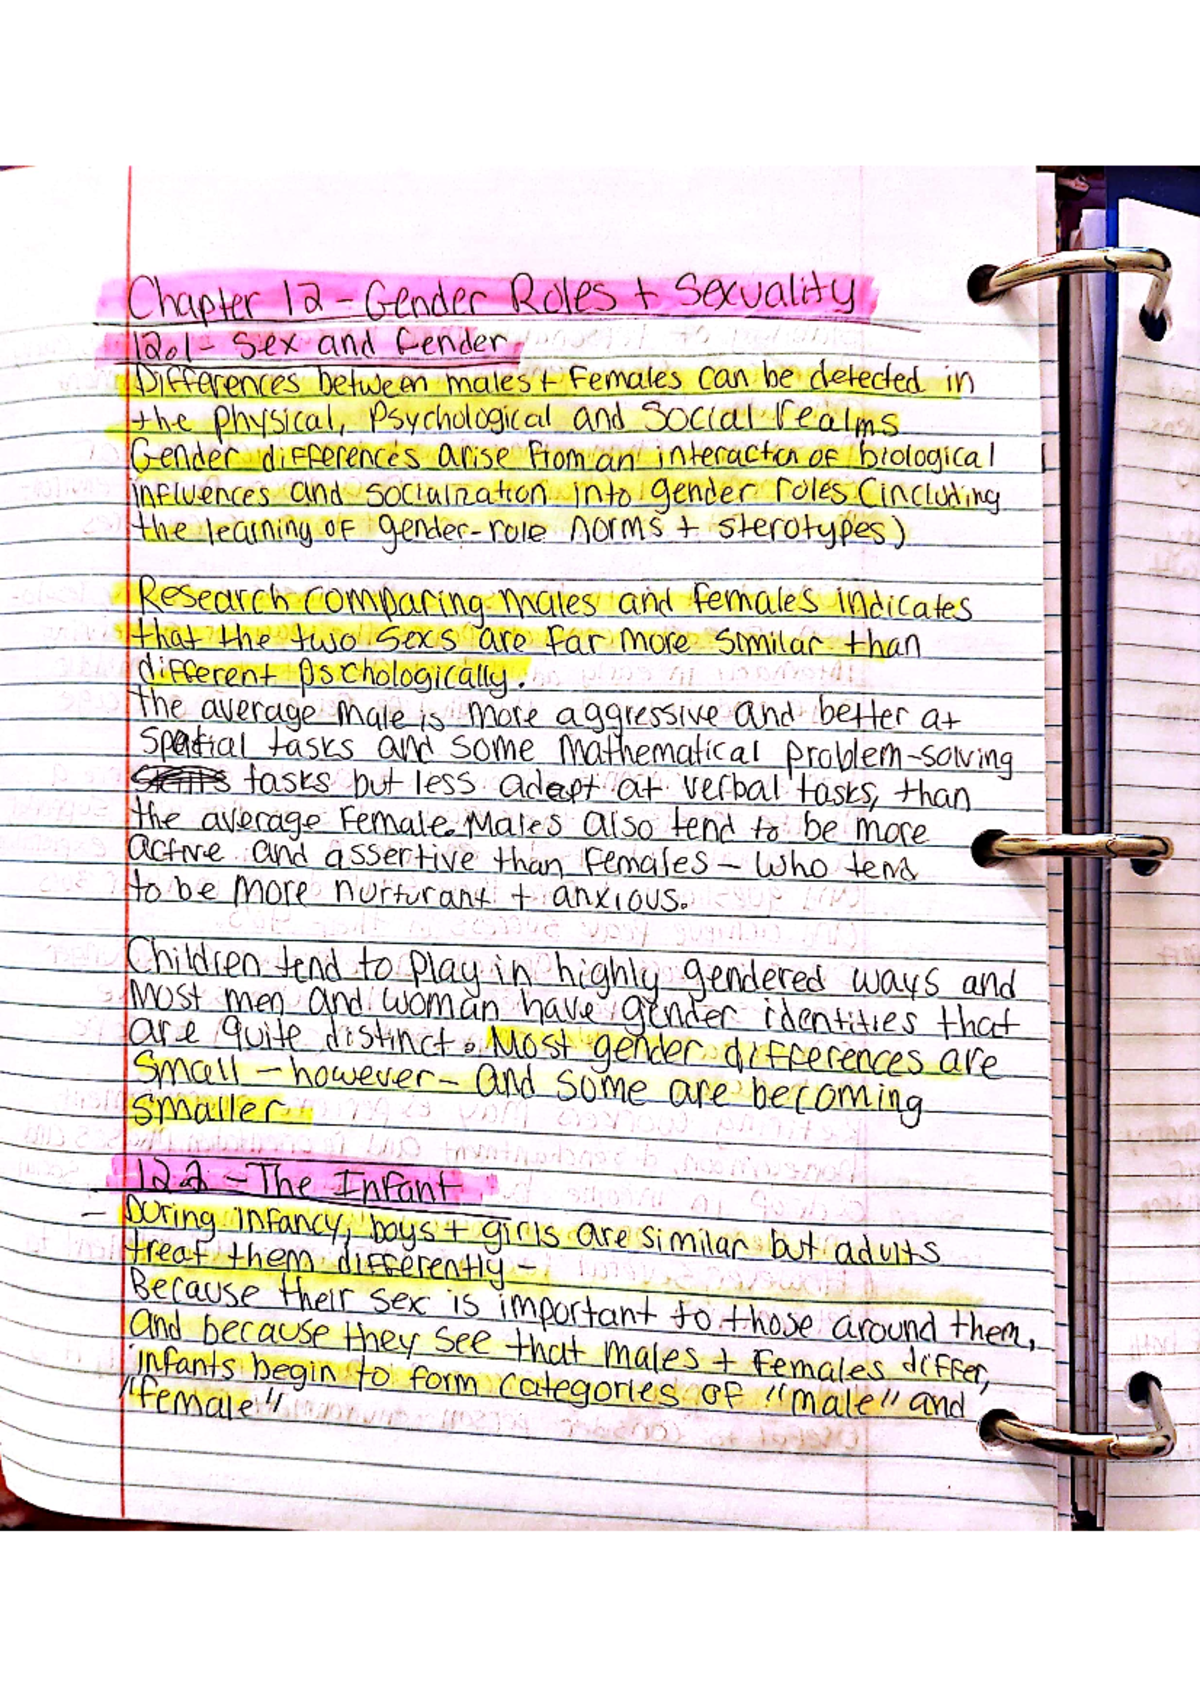 Chapter 12 - Gender Roles + Sexuality
12.1 - Sex and Gender
Differences between males + Females can be detected in
the physical, Psychological and Social realms
Gender differences arise from an interaction of biological
influences and socialization into gender roles (including
the learning of gender-role norms + sterotypes)
Research comparing males and females indicates
that the two sexs are far more similar than
different Pschologically.
the average male is more aggressive and better at
spatial tasks and some mathematical problem-solving
tasks but less adept at verbal tasks, than
the average Female. Males also tend to be more
active and assertive than females - who tend
to be more nurturant + anxious.
Children tend to play in highly gendered ways and
most men and woman have gender identities that
are quite distinct. Most gender differences are
Small - however - and some are becoming
smaller
12.2 - The Infant
- During infancy, boys + girls are similar but adults
treat them differently -
Because their sex is important to those around them,
and because they see that males + Females differ,
infants begin to form categories of "male" and
"female"